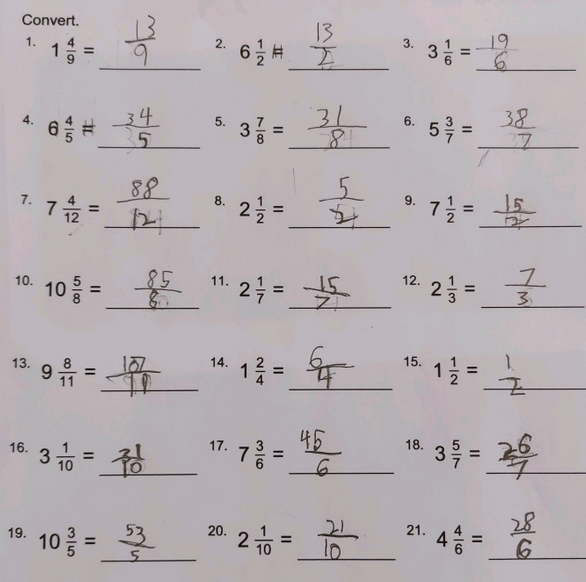 Convert.
1. 1 4/9 = 13/9 2. 6 1/2 = 13/2 3. 3 1/6 = 19/6
4. 6 4/5 = 34/5 5. 3 7/8 = 31/8 6. 5 3/7 = 38/7
7. 7 4/12 = 88/12 8. 2 1/2 = 5/2 9. 7 1/2 = 15/2
10. 10 5/8 = 85/8 11. 2 1/7 = 15/7 12. 2 1/3 = 7/3
13. 9 8/11 = 107/11 14. 1 2/4 = 6/4 15. 1 1/2 = 1/2
16. 3 1/10 = 31/10 17. 7 3/6 = 45/6 18. 3 5/7 = 26/7
19. 10 3/5 = 53/5 20. 2 1/10 = 21/10 21. 4 4/6 = 28/6